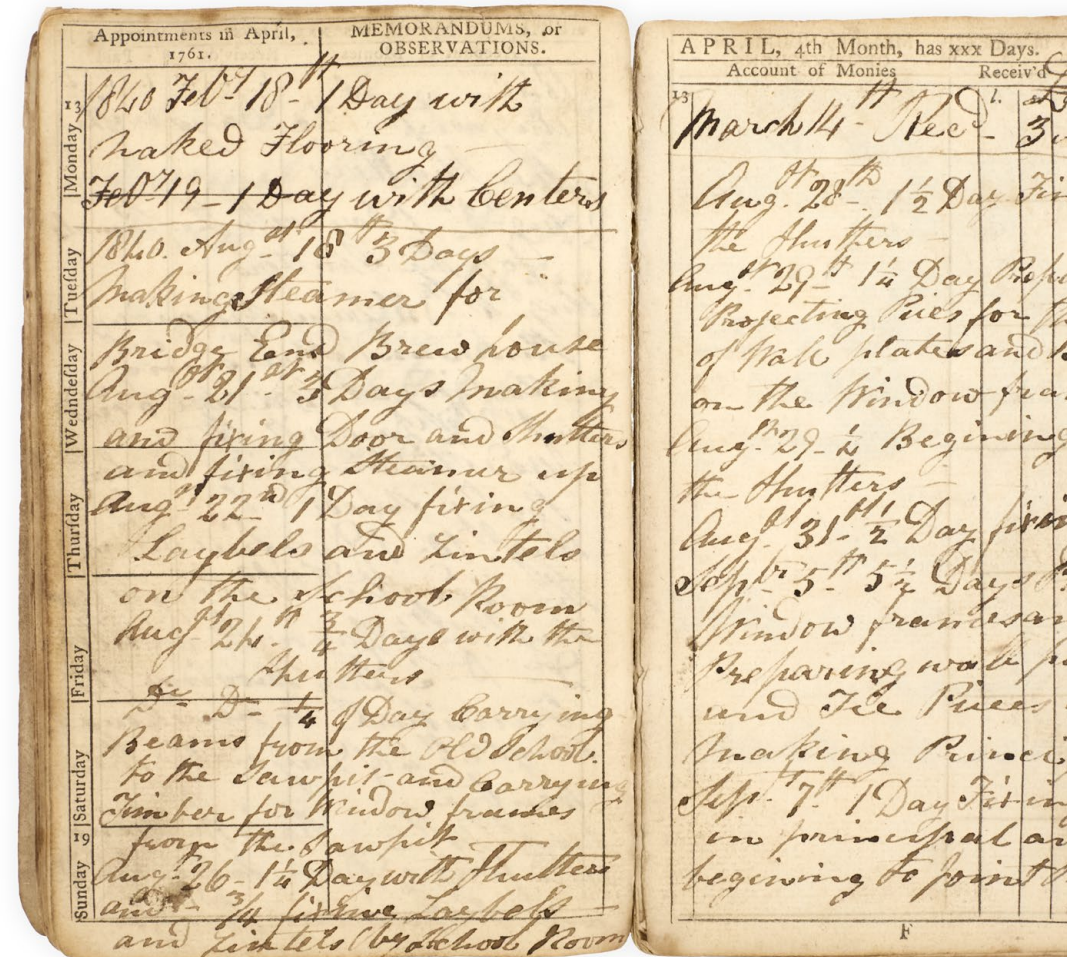 Appointments in April,
1761.
MEMORANDUMS, or
OBSERVATIONS.
13
Monday
Tuesday
Wednesday
Thursday
Friday
Saturday
19
Sunday
1840 Feby 18th 1 Day with
naked Flooring
Feby 19 - 1 Day with Centers
1840. Augst 18th 3 Days
making Steamer for
Bridge End Brewhouse
Augst 21st 3 Days making
and fixing Door and Shutters
and fixing Steamer up
Augst 22nd 1 Day fixing
Laybels and Lintels
on the School Room
Augst 24th 3/4 Days with the
Shutters
Do Do 1/4 of Day Carrying
Beams from the Old School
to the Sawpit and Carrying
Timber for Window frames
from the Sawpit
Aug 26 - 1 1/4 Day with Shutters
and 3/4 fixing Laybels
and Lintels (by School Room
APRIL, 4th Month, has xxx Days.
Account of Monies
Receiv'd
13
March 14th Recd 3
Augst 28th 1 1/2 Day
the Shutters
Augst 29th 1 1/4 Day
Projecting Pieces for
of Wall plates and
on the Window
Augst 29 - 1/2 Begining
the Shutters
Augst 31st 1/2 Day
Septbr 5th 5 1/2 Days
Window frames
Preparing wall
and Tie Pieces
making
Sept 7th 1 Day
in principal
begining to joint
F